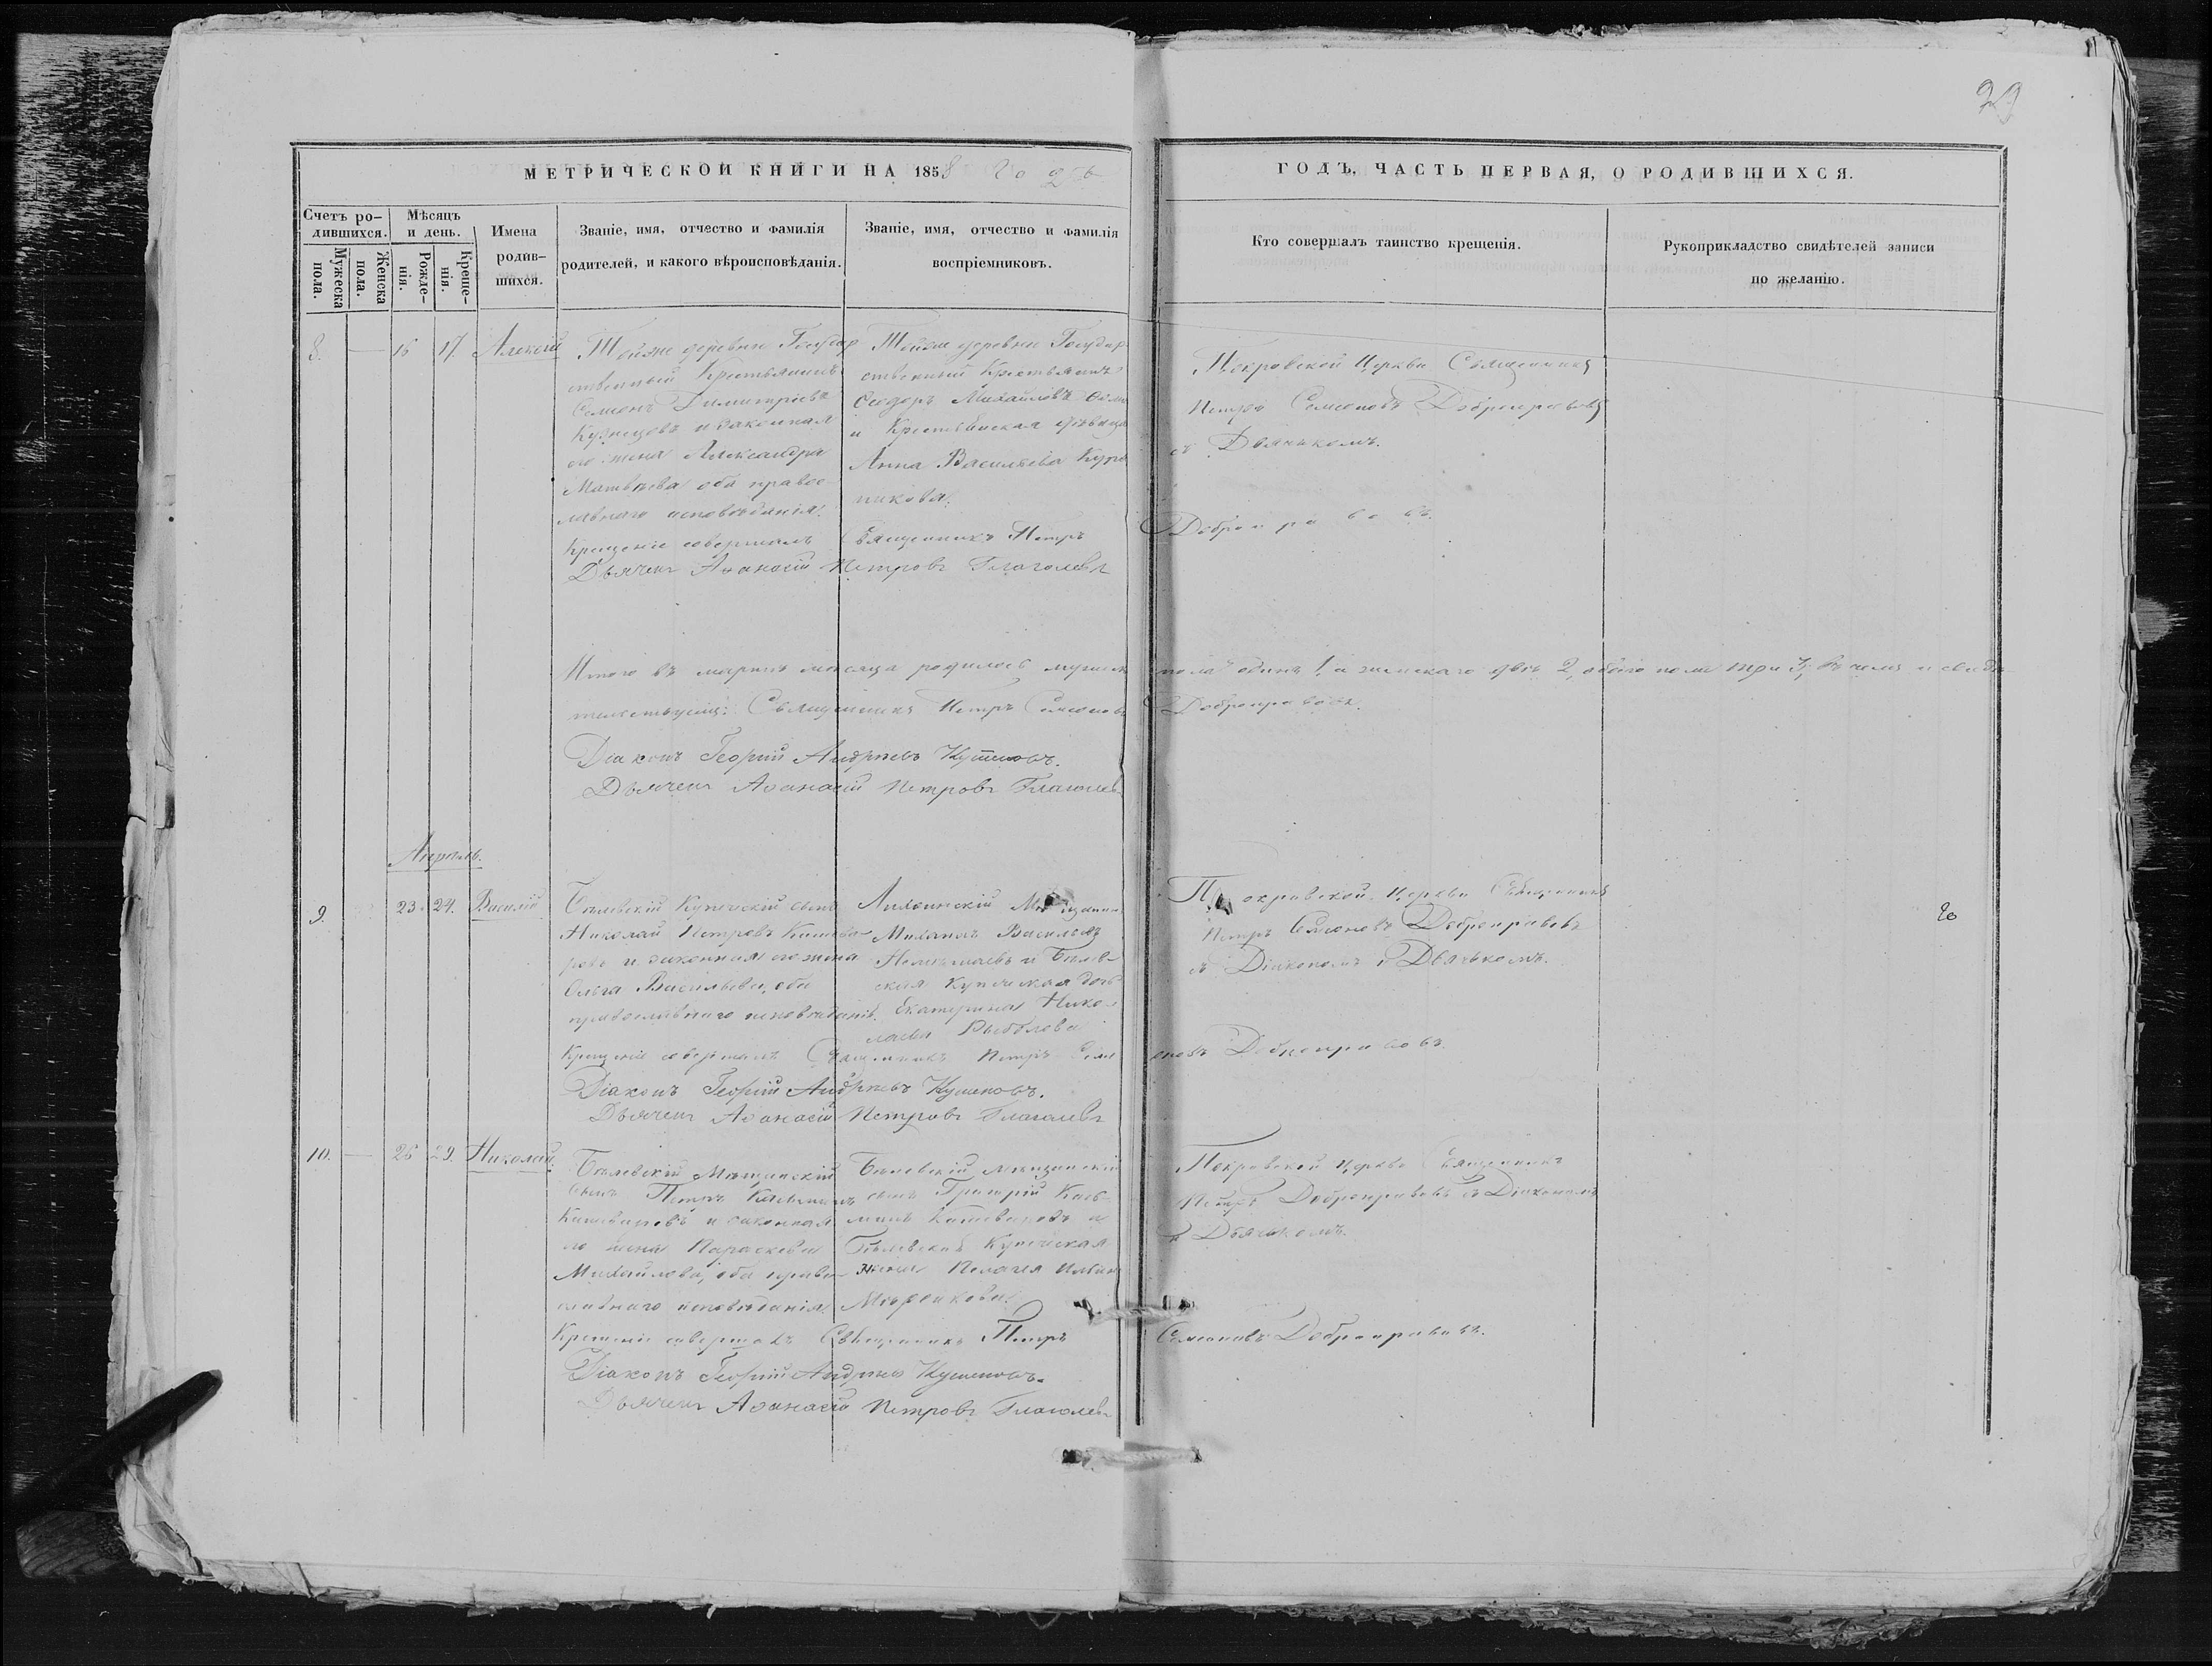 29
МЕТРИЧЕСКОЙ КНИГИ НА 1858 годъ
ГОДЪ, ЧАСТЬ ПЕРВАЯ, О РОДИВШИХСЯ.
Счетъ ро-
дившихся.
Мужеска
пола.
Женска
пола.
Мѣсяцъ
и день.
Рожде-
нія.
Креще-
нія.
Имена
родив-
шихся.
Званіе, имя, отчество и фамилія
родителей, и какого вѣроисповѣданія.
Званіе, имя, отчество и фамилія
воспріемниковъ.
Кто совершалъ таинство крещенія.
Рукоприкладство свидѣтелей записи
по желанію.
8. — 16 17 Алексѣй
Тойже деревни Государ
ственный Крестьянинъ
Семенъ Димитріевъ
Кузнецовъ и законная
его жена Александра
Матвѣева оба правос
лавнаго исповѣданія.
Тойже деревни Государ
ственный Крестьянинъ
Ѳеодоръ Михайловъ
и Крестьянская дѣвица
Анна Васильева
никова.
Покровской Церкви Священникъ
Петръ Семеновъ Доброправовъ
съ Дьячкомъ.
Крещеніе совершалъ Священникъ Петръ Доброправовъ.
Дьячекъ Аѳанасій Петровъ Глаголевъ
Итого въ мартѣ мѣсяцѣ родилось мужеск пола одинъ 1, а женскаго двѣ 2, обоего пола три 3, въ чемъ и свидѣ
тельствуемъ: Священникъ Петръ Семеновъ Доброправовъ.
Діаконъ Георгій Андреевъ Кутеповъ.
Дьячекъ Аѳанасій Петровъ Глаголевъ
Апрѣль.
9. 23. 24. Василій
Бѣлевскій Купеческій сынъ
Николай Петровъ
и законная его жена
Ольга Васильева, оба
православнаго исповѣданія.
Лихвинскій Мѣщанинъ
Василь
и Бѣлев-
ская Купеческая дочь
Екатерина Нико-
лаева
Покровской Церкви Священникъ
Петръ Семеновъ Доброправовъ
съ Діакономъ и Дьячкомъ.
Крещеніе совершалъ Священникъ Петръ Семе новъ Доброправовъ.
Діаконъ Георгій Андреевъ Кутеповъ.
Дьячекъ Аѳанасій Петровъ Глаголевъ
10. — 26 29. Николай.
Бѣлевскій Мѣщанскій
сынъ Петръ
и законная
его жена Параскева
Михайлова, оба право-
славнаго исповѣданія.
Бѣлевскій мѣщанскій
сынъ Григорій
и
Бѣлевская Купеческая
жена Пелагея
Покровской Церкви Священникъ
Петръ Доброправовъ съ Діакономъ
и Дьячкомъ.
Крещеніе совершалъ Священникъ Петръ Семеновъ Доброправовъ.
Діаконъ Георгій Андреевъ Кутеповъ.
Дьячекъ Аѳанасій Петровъ Глаголевъ